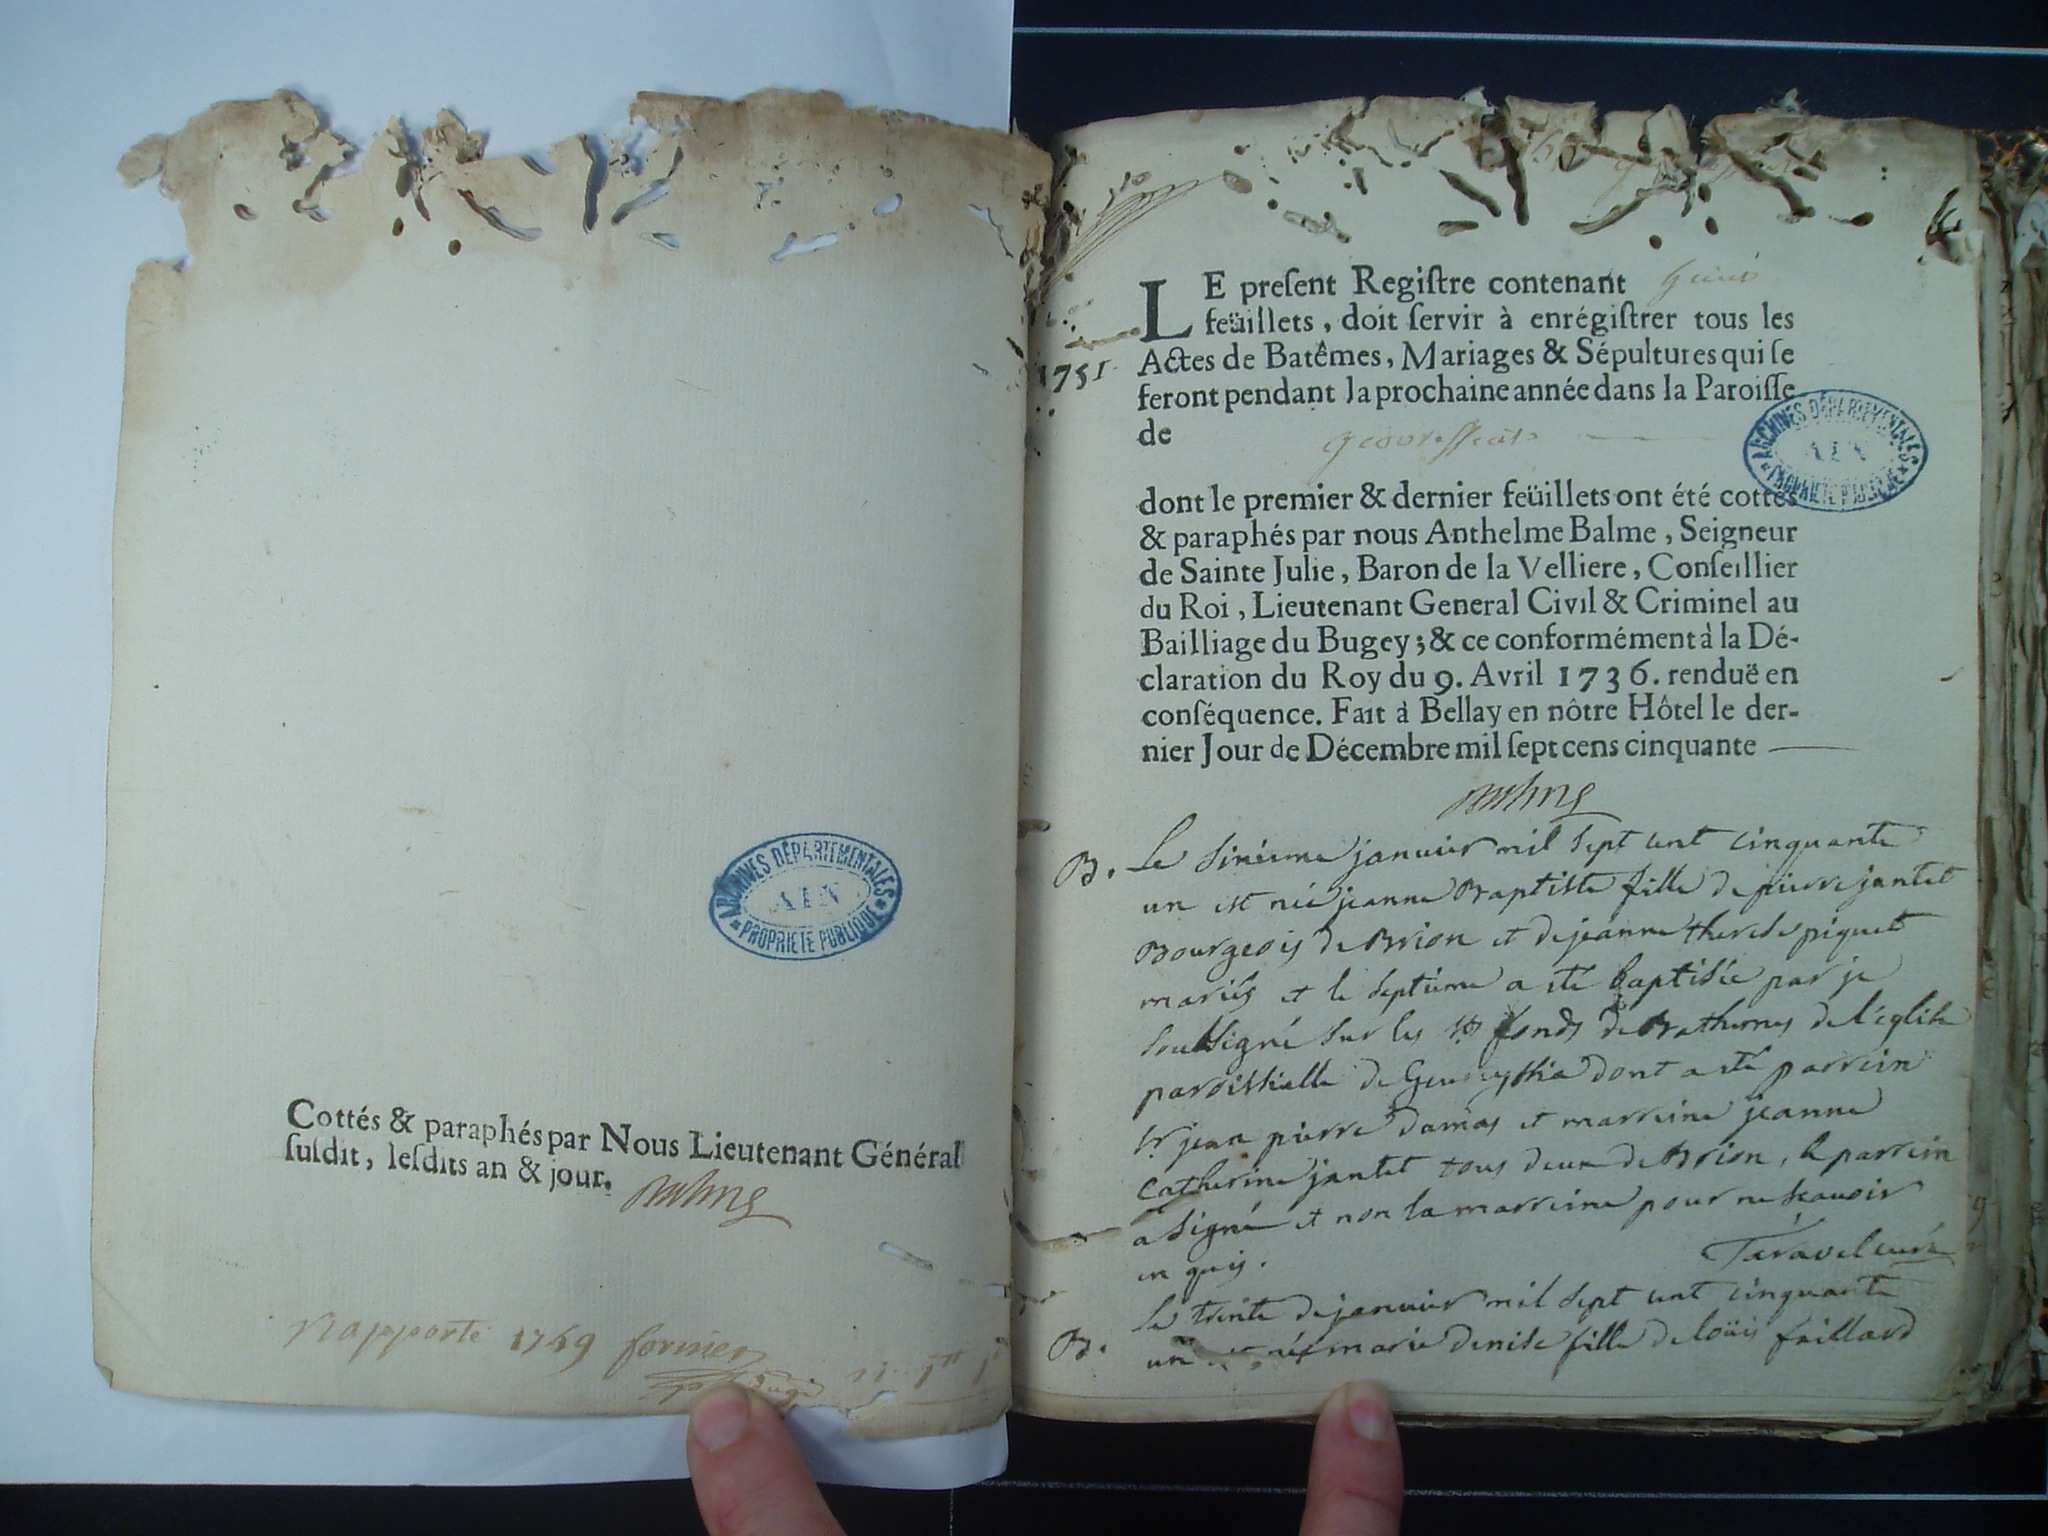 Cottés & paraphés par Nous Lieutenant Général
ſuſdit, leſdits an & jour.
Rapporté 1749
ARCHIVES DÉPARTEMENTALES
AIN
PROPRIÉTÉ PUBLIQUE
LE preſent Regiſtre contenant
feüillets, doit ſervir à enrégiſtrer tous les
Actes de Batêmes, Mariages & Sépultures qui ſe
1751.
feront pendant la prochaine année dans la Paroiſſe
de
ARCHIVES DÉPARTEMENTALES
AIN
PROPRIÉTÉ PUBLIQUE
dont le premier & dernier feüillets ont été cottés
& paraphés par nous Anthelme Balme, Seigneur
de Sainte Julie, Baron de la Velliere, Conſeillier
du Roi, Lieutenant General Civil & Criminel au
Bailliage du Bugey; & ce conformément à la Dé-
claration du Roy du 9. Avril 1736. renduë en
conſéquence. Fait à Bellay en nôtre Hôtel le der-
nier Jour de Décembre mil ſept cens cinquante
B. Le sixieme janvier mil sept cent cinquante
un est née jeanne Baptiste fille de pierre jantet
Bourgeois de Brion et de jeanne therese piquet
mariés et le septieme a eté baptisée par je
soussigné sur les sts fonds de l'eglise
paroissialle de dont a eté parrein
sr jean pierre damas et marreine jeanne
catherine jantet tous deux de Brion, le parrein
a signé et non la marreine pour ne sçavoir
en quis. Taravel curé
B. Le trente de janvier mil sept cent cinquante
un est née marie denise fille de loüis faillard